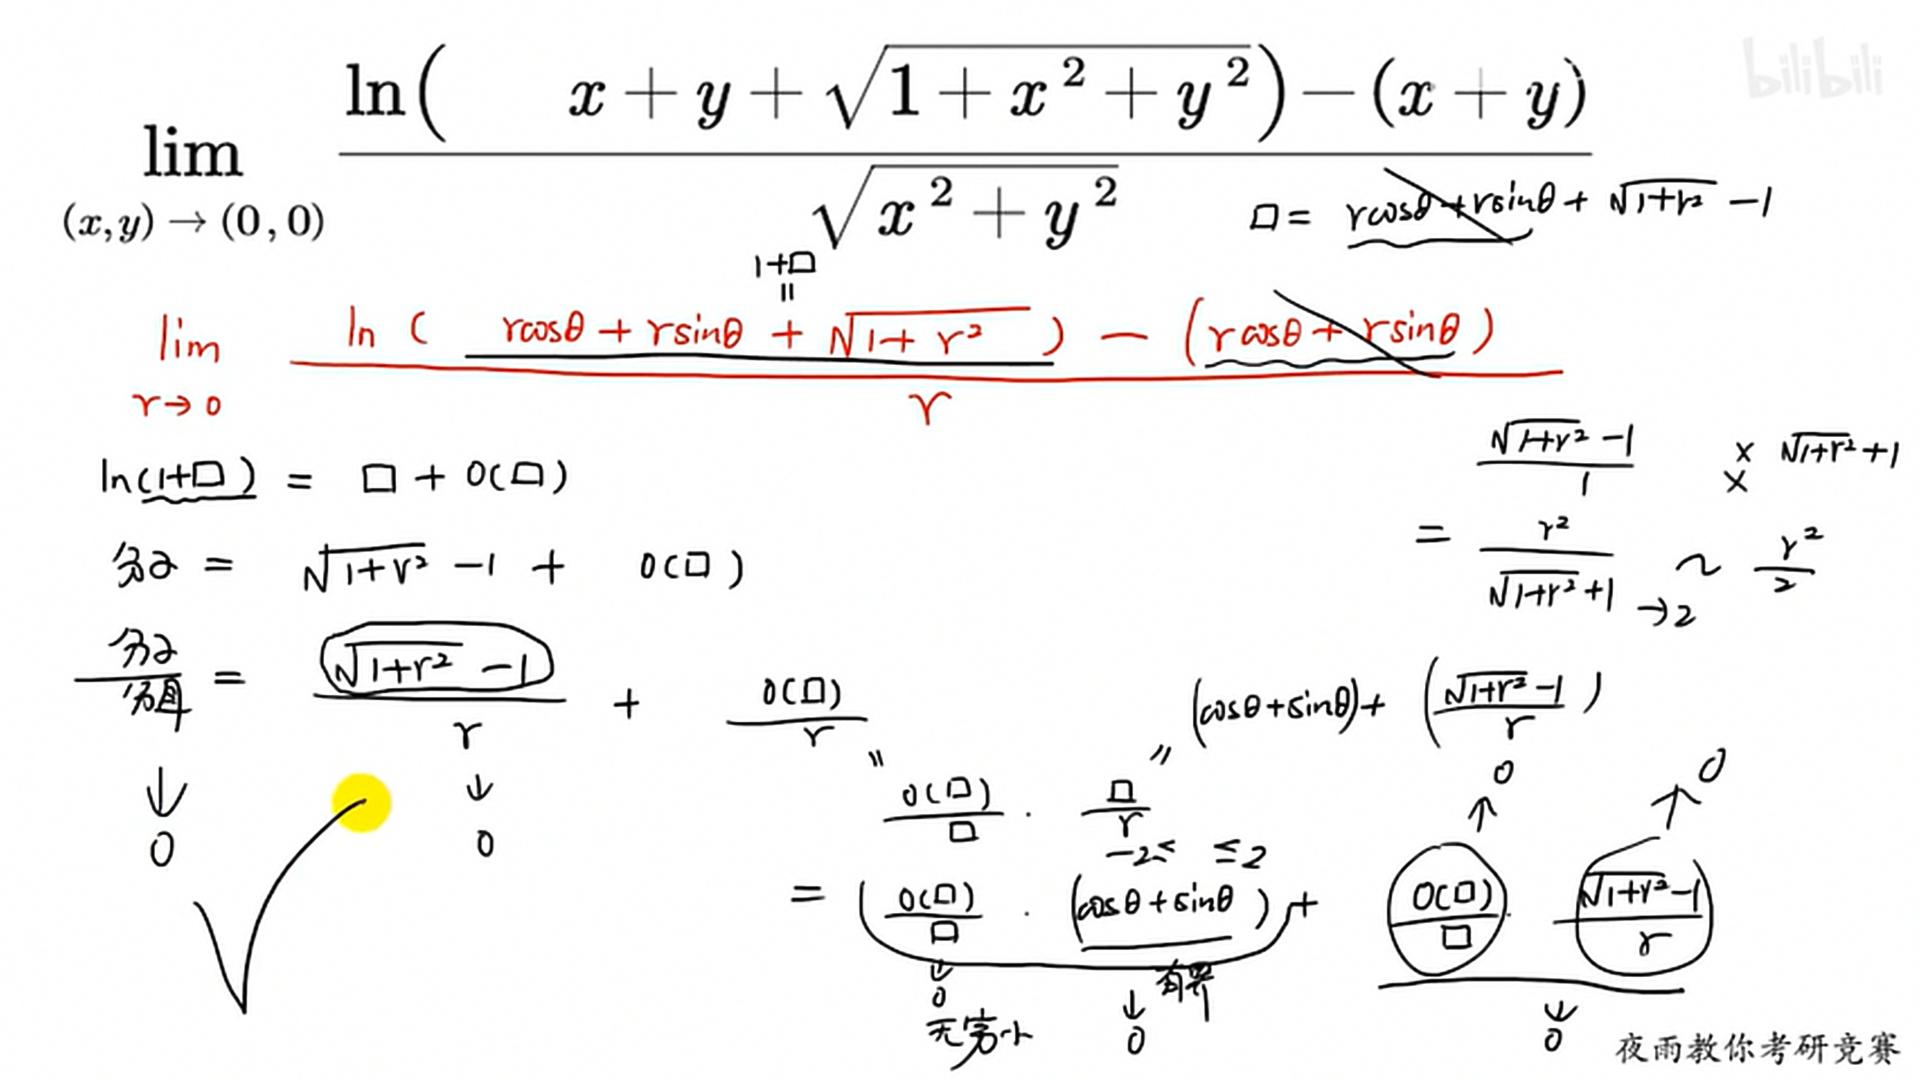 bilibili
lim (x,y)→(0,0) ln( x+y+√(1+x²+y²))−(x+y) / √(x²+y²)
□= rcosθ+rsinθ+ √(1+r²) −1
1+□
=
lim r→0 ln ( rcosθ + rsinθ + √(1+ r²) ) − (rcosθ + rsinθ) / r
ln(1+□) = □ + o(□)
分子 = √(1+r²) −1 + o(□)
分子/分母 = (√(1+r²) −1)/r + o(□)/r
↓ 0 ↓ 0
(√(1+r²) −1)/1 × √(1+r²)+1 ×
= r²/(√(1+r²)+1) →2 ~ r²/2
= o(□)/□ · □/r = (cosθ+sinθ)+ ((√(1+r²)−1)/r)
−2≤ ≤2
= (o(□)/□ · (cosθ+sinθ)) + o(□)/□ · (√(1+r²)−1)/r
↑ 0 ↑ 0
↓ 0 无穷小 有界 ↓ 0 ↓ 0
夜雨教你考研竞赛